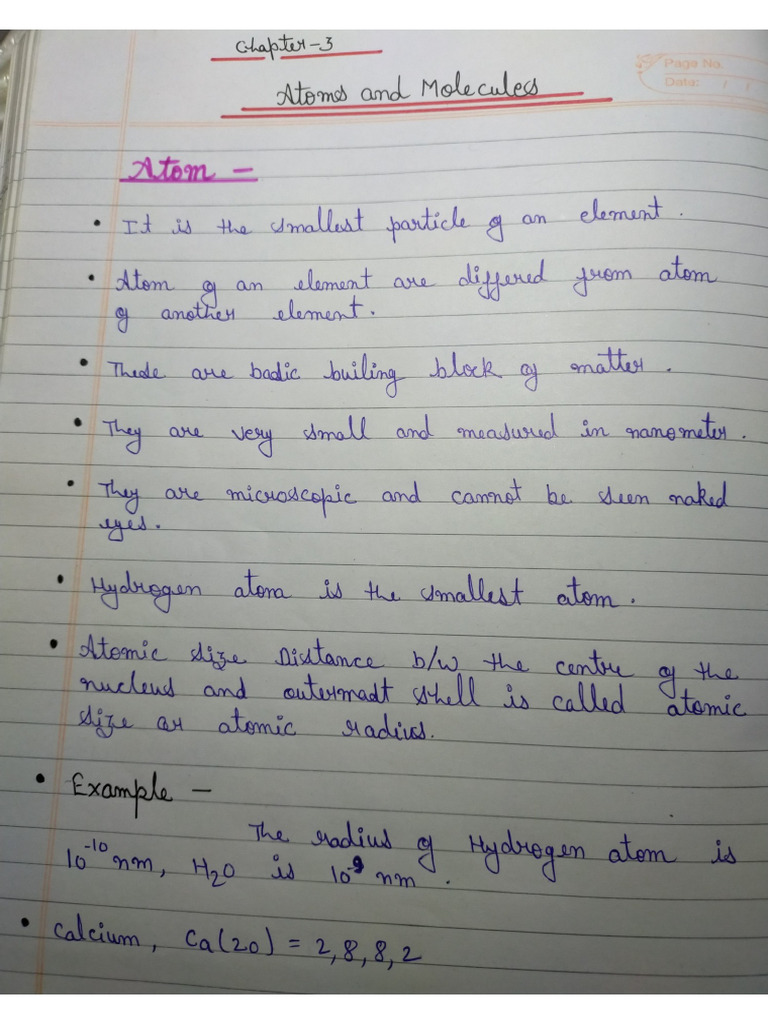 Chapter-3
Page No.
Date: / /
Atoms and Molecules
Atom –
• It is the smallest particle of an element.
• Atom of an element are differed from atom
of another element.
• These are basic builing block of matter.
• They are very small and measured in nanometer.
• They are microscopic and cannot be seen naked
eyes.
• Hydrogen atom is the smallest atom.
• Atomic size Distance b/w the centre of the
nucleus and outermost shell is called atomic
size or atomic radius.
• Example –
The radius of Hydrogen atom is
10⁻¹⁰ nm, H₂O is 10⁻⁹ nm.
• Calcium, Ca(20) = 2,8,8,2